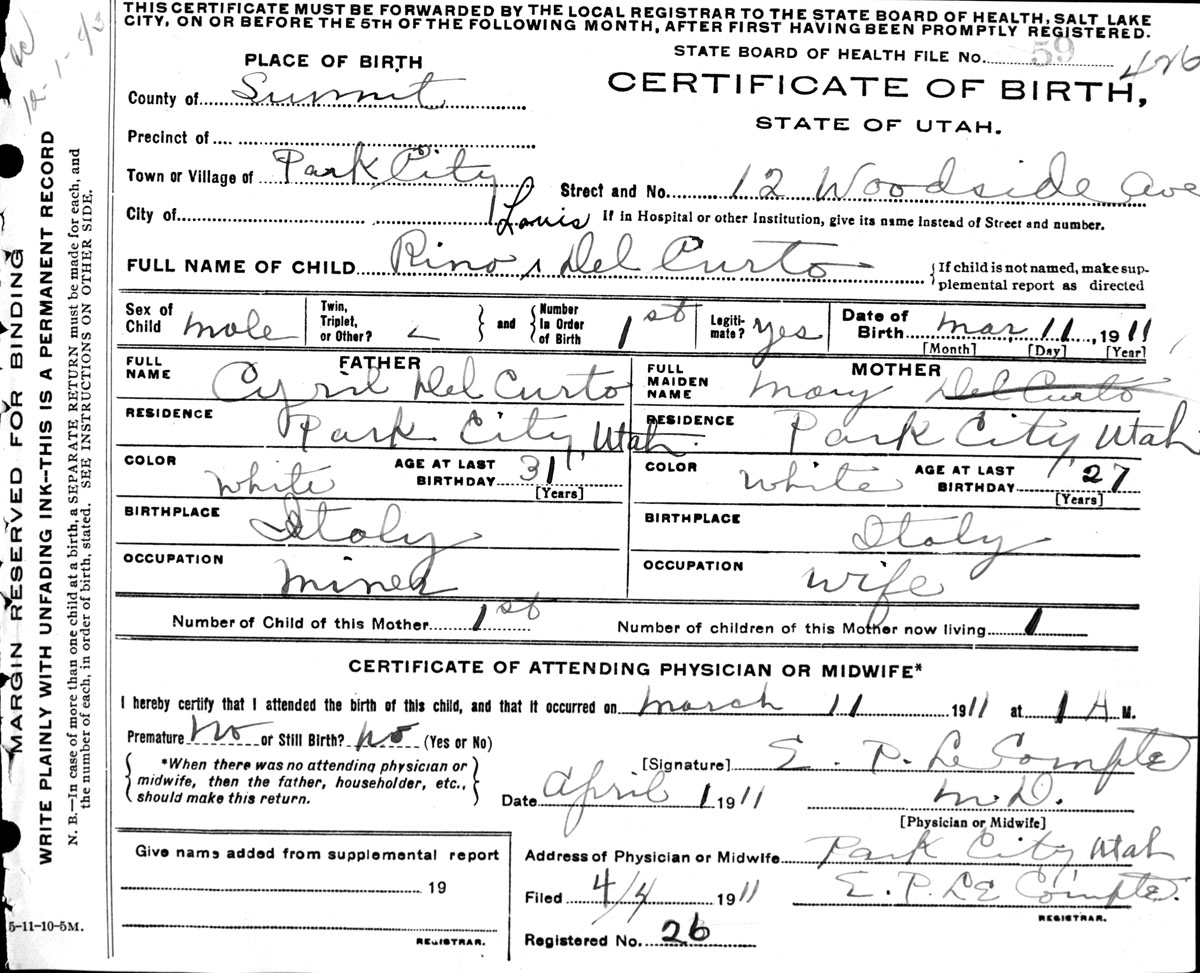 THIS CERTIFICATE MUST BE FORWARDED BY THE LOCAL REGISTRAR TO THE STATE BOARD OF HEALTH, SALT LAKE
CITY, ON OR BEFORE THE 5TH OF THE FOLLOWING MONTH, AFTER FIRST HAVING BEEN PROMPTLY REGISTERED.
STATE BOARD OF HEALTH FILE NO. 59 426
PLACE OF BIRTH
CERTIFICATE OF BIRTH,
STATE OF UTAH.
County of Summit
Precinct of
Town or Village of Park City
Street and No. 12 Woodside Ave
City of
If in Hospital or other Institution, give its name instead of Street and number.
Louis
FULL NAME OF CHILD Rino ʌ Del Curto
{If child is not named, make sup-
plemental report as directed
Sex of Child male
Twin, Triplet, or Other?
and
Number In Order of Birth 1st
Legiti-mate? yes
Date of Birth mar, 11, 1911
[Month] [Day] [Year]
FATHER
FULL NAME Cyril Del Curto
MOTHER
FULL MAIDEN NAME Mary Del Curto
RESIDENCE Park City, Utah.
RESIDENCE Park City, Utah
COLOR white AGE AT LAST BIRTHDAY 31 [Years]
COLOR white AGE AT LAST BIRTHDAY 27 [Years]
BIRTHPLACE Italy
BIRTHPLACE Italy
OCCUPATION miner
OCCUPATION wife
Number of Child of this Mother 1st
Number of children of this Mother now living 1
CERTIFICATE OF ATTENDING PHYSICIAN OR MIDWIFE*
I hereby certify that I attended the birth of this child, and that it occurred on march 11 1911 at 1 A M.
Premature No or Still Birth? No (Yes or No)
*When there was no attending physician or
midwife, then the father, householder, etc.,
should make this return.
[Signature] E. P. Le Compte
Date April 1 1911 M.D.
[Physician or Midwife]
Give name added from supplemental report
19
REGISTRAR.
Address of Physician or Midwife Park City Utah
Filed 4/4 1911 E. P. LE Compte.
REGISTRAR.
Registered No. 26
5-11-10-5M.
MARGIN RESERVED FOR BINDING
WRITE PLAINLY WITH UNFADING INK—THIS IS A PERMANENT RECORD
N. B.—In case of more than one child at a birth, a SEPARATE RETURN must be made for each, and
the number of each, in order of birth, stated. SEE INSTRUCTIONS ON OTHER SIDE.